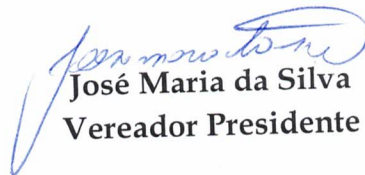 José Maria da Silva
Vereador Presidente